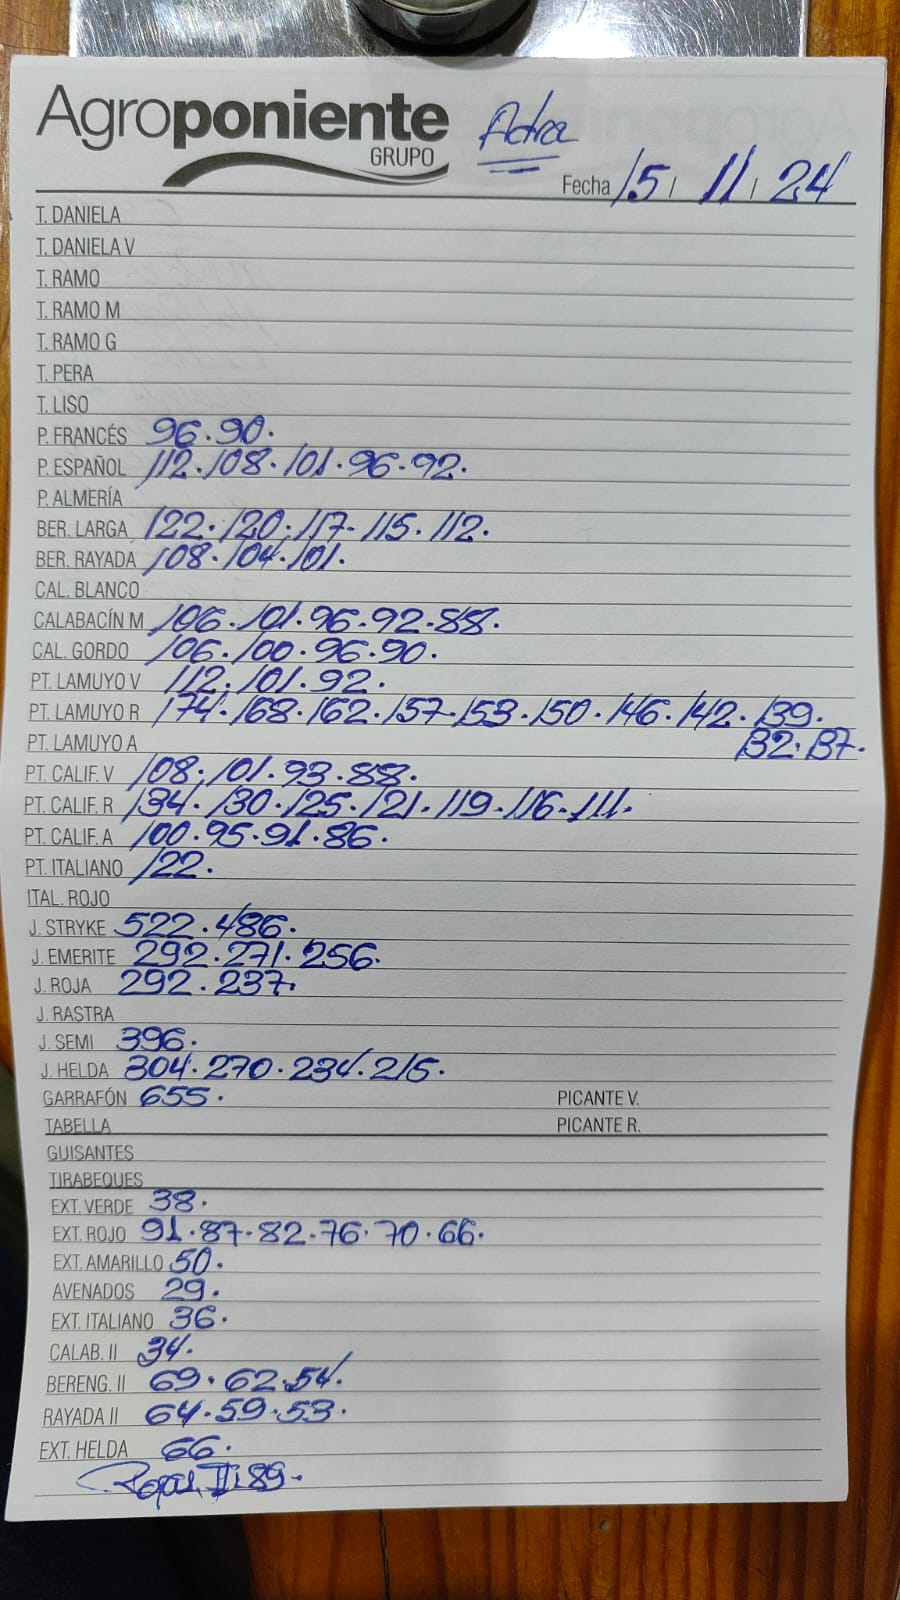 Agroponiente
GRUPO
Adra
Fecha 15 / 11 / 24
T. DANIELA
T. DANIELA V
T. RAMO
T. RAMO M
T. RAMO G
T. PERA
T. LISO
P. FRANCÉS 96.90.
P. ESPAÑOL 112.108.101.96.92.
P. ALMERÍA
BER. LARGA 122.120.117.115.112.
BER. RAYADA 108.104.101.
CAL. BLANCO
CALABACÍN M 106.101.96.92.88.
CAL. GORDO 106.100.96.90.
PT. LAMUYO V 112.101.92.
PT. LAMUYO R 174.168.162.157.153.150.146.142.139.
132.137.
PT. LAMUYO A
PT. CALIF. V 108.101.93.88.
PT. CALIF. R 134.130.125.121.119.116.111.
PT. CALIF. A 100.95.91.86.
PT. ITALIANO 122.
ITAL. ROJO
J. STRYKE 522.486.
J. EMERITE 292.271.256.
J. ROJA 292.237.
J. RASTRA
J. SEMI 396.
J. HELDA 304.270.234.215.
GARRAFÓN 655. PICANTE V.
TABELLA PICANTE R.
GUISANTES
TIRABEQUES
EXT. VERDE 38.
EXT. ROJO 91.87.82.76.70.66.
EXT. AMARILLO 50.
AVENADOS 29.
EXT. ITALIANO 36.
CALAB. II 34.
BERENG. II 69.62.54.
RAYADA II 64.59.53.
EXT. HELDA 66.
II 89.